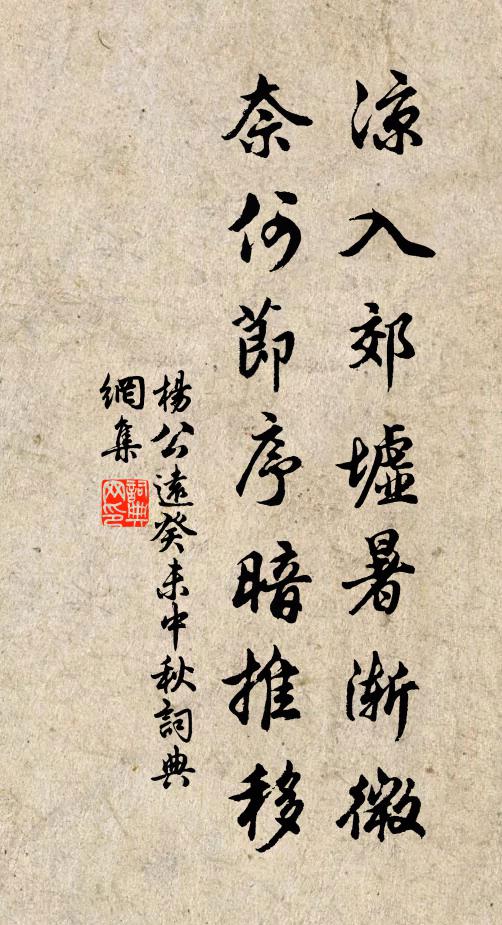 涼入郊墟暑漸微
奈何節序暗推移
楊公遠癸未中秋詞典
網集
詞典
网印